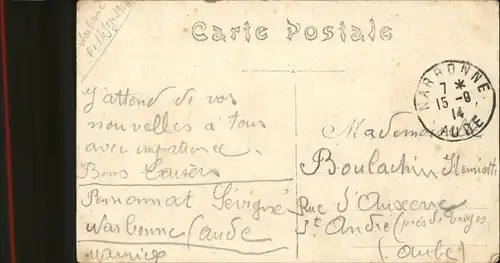 Narbonne
Carte Postale
NARBONNE
7 *
15-9
14
AUDE
J'attend de vos
nouvelles à tous
avec impatience.
Bons baisers
Pensionnat Sévigné
Narbonne (Aude
Maurice
Boulachin Henriette
Rue d'Auxerre
St André (près de Troyes
(Aube)